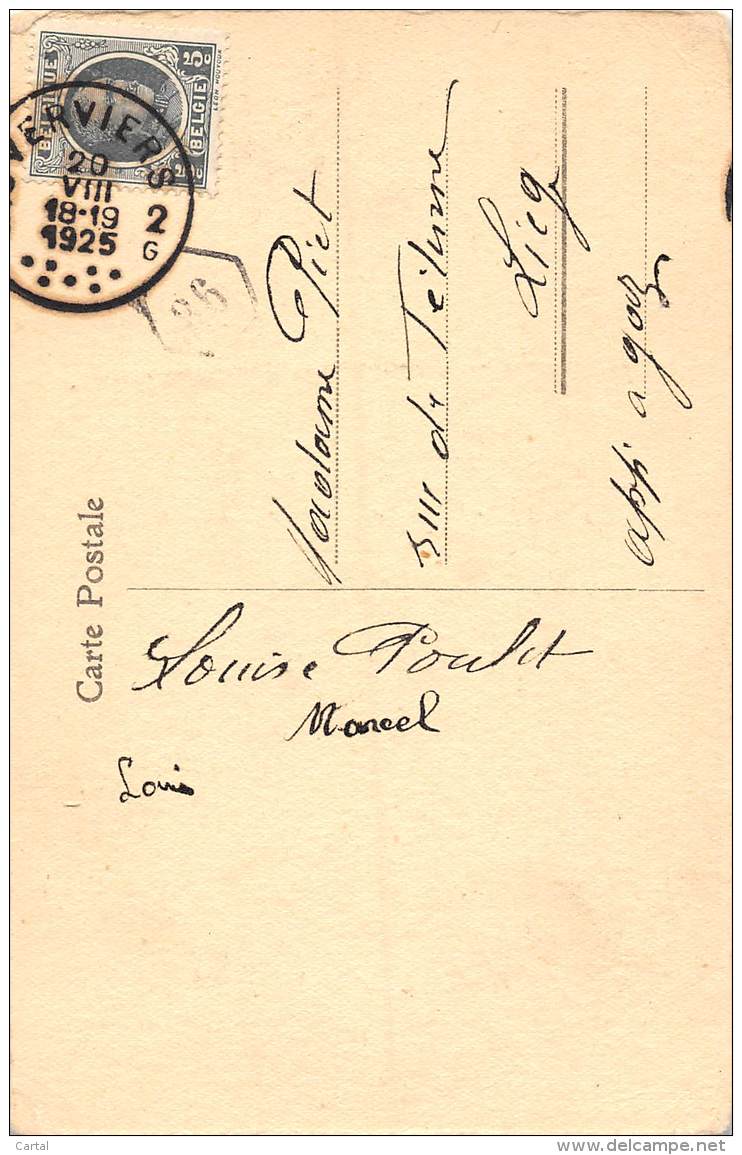 BELGIQUE
BELGIE
5c
LEON HOUYOUX
VERVIERS
20
VIII
18-19
1925
2
G
36
Carte Postale
Madame Piet
rue de
Liege
appi a
Louise Poulet
Marcel
Louis
Cartal
www.delcampe.net